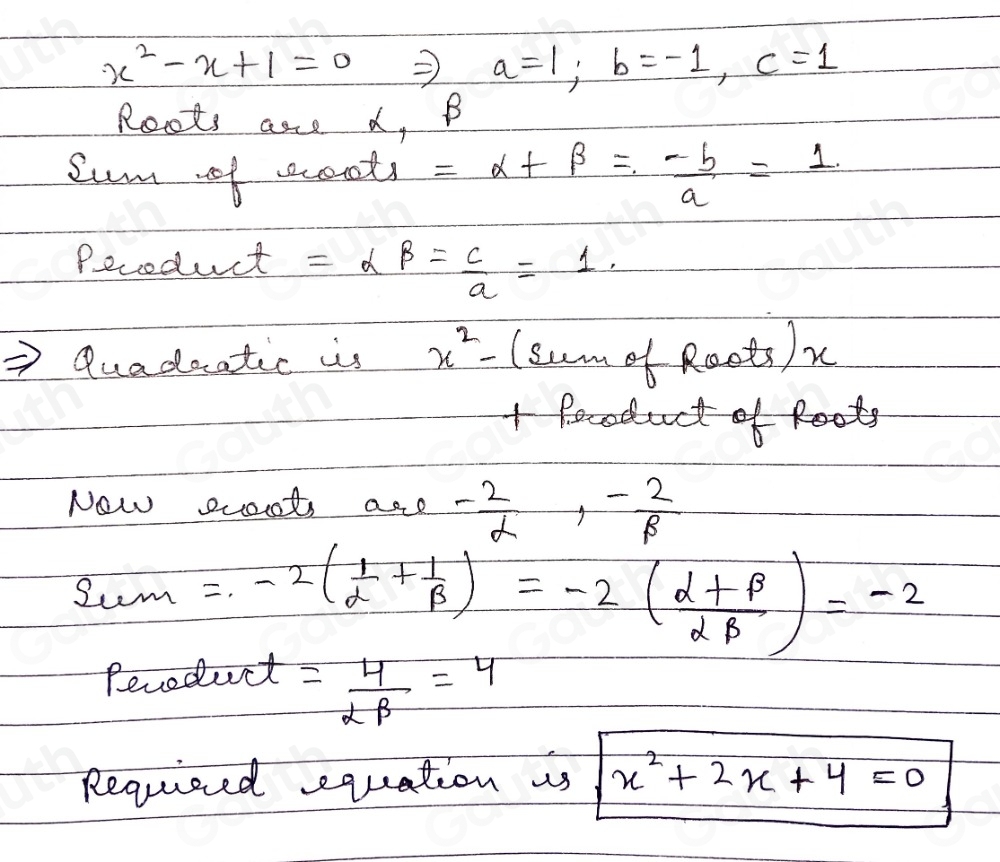 x² - x + 1 = 0 ⇒ a = 1; b = -1, c = 1
Roots are α, β
Sum of roots = α + β = -b/a = 1.
Product = αβ = c/a = 1.
⇒ Quadratic is x² - (Sum of Roots)x
+ Product of Roots
Now roots are -2/α, -2/β
Sum = -2(1/α + 1/β) = -2((α + β)/αβ) = -2
Product = 4/αβ = 4
Required equation is x² + 2x + 4 = 0
Gauth